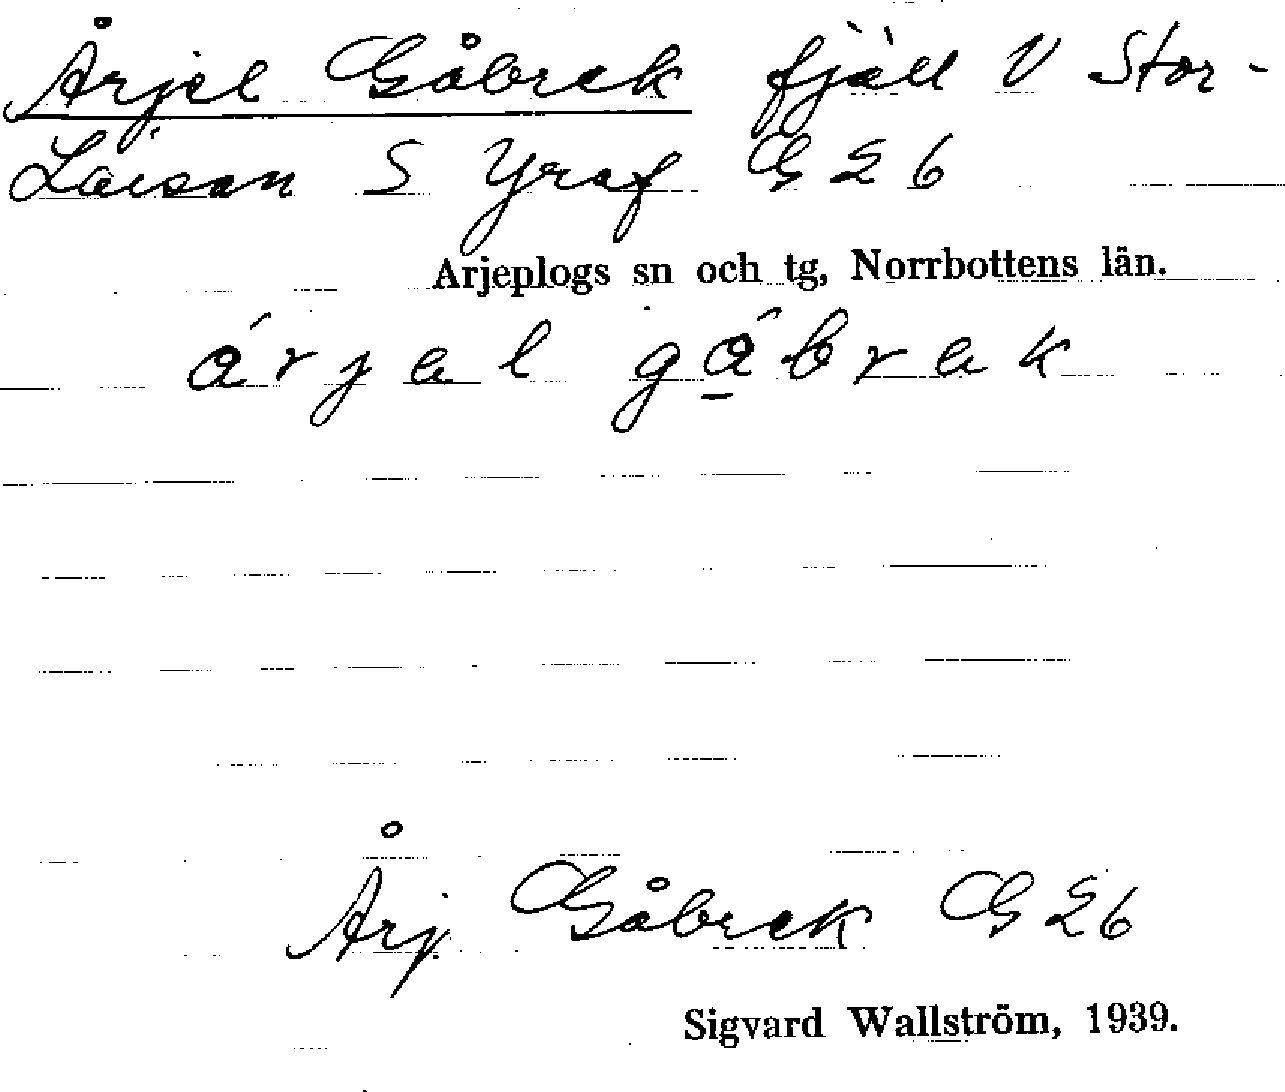 Årjel Gåbrek fjäll V Stor-
Laisan S Yraf G E 6
Arjeplogs sn och tg, Norrbottens län.
á r j a l g á̱ b r a k
Årj Gåbrek G E 6
Sigvard Wallström, 1939.